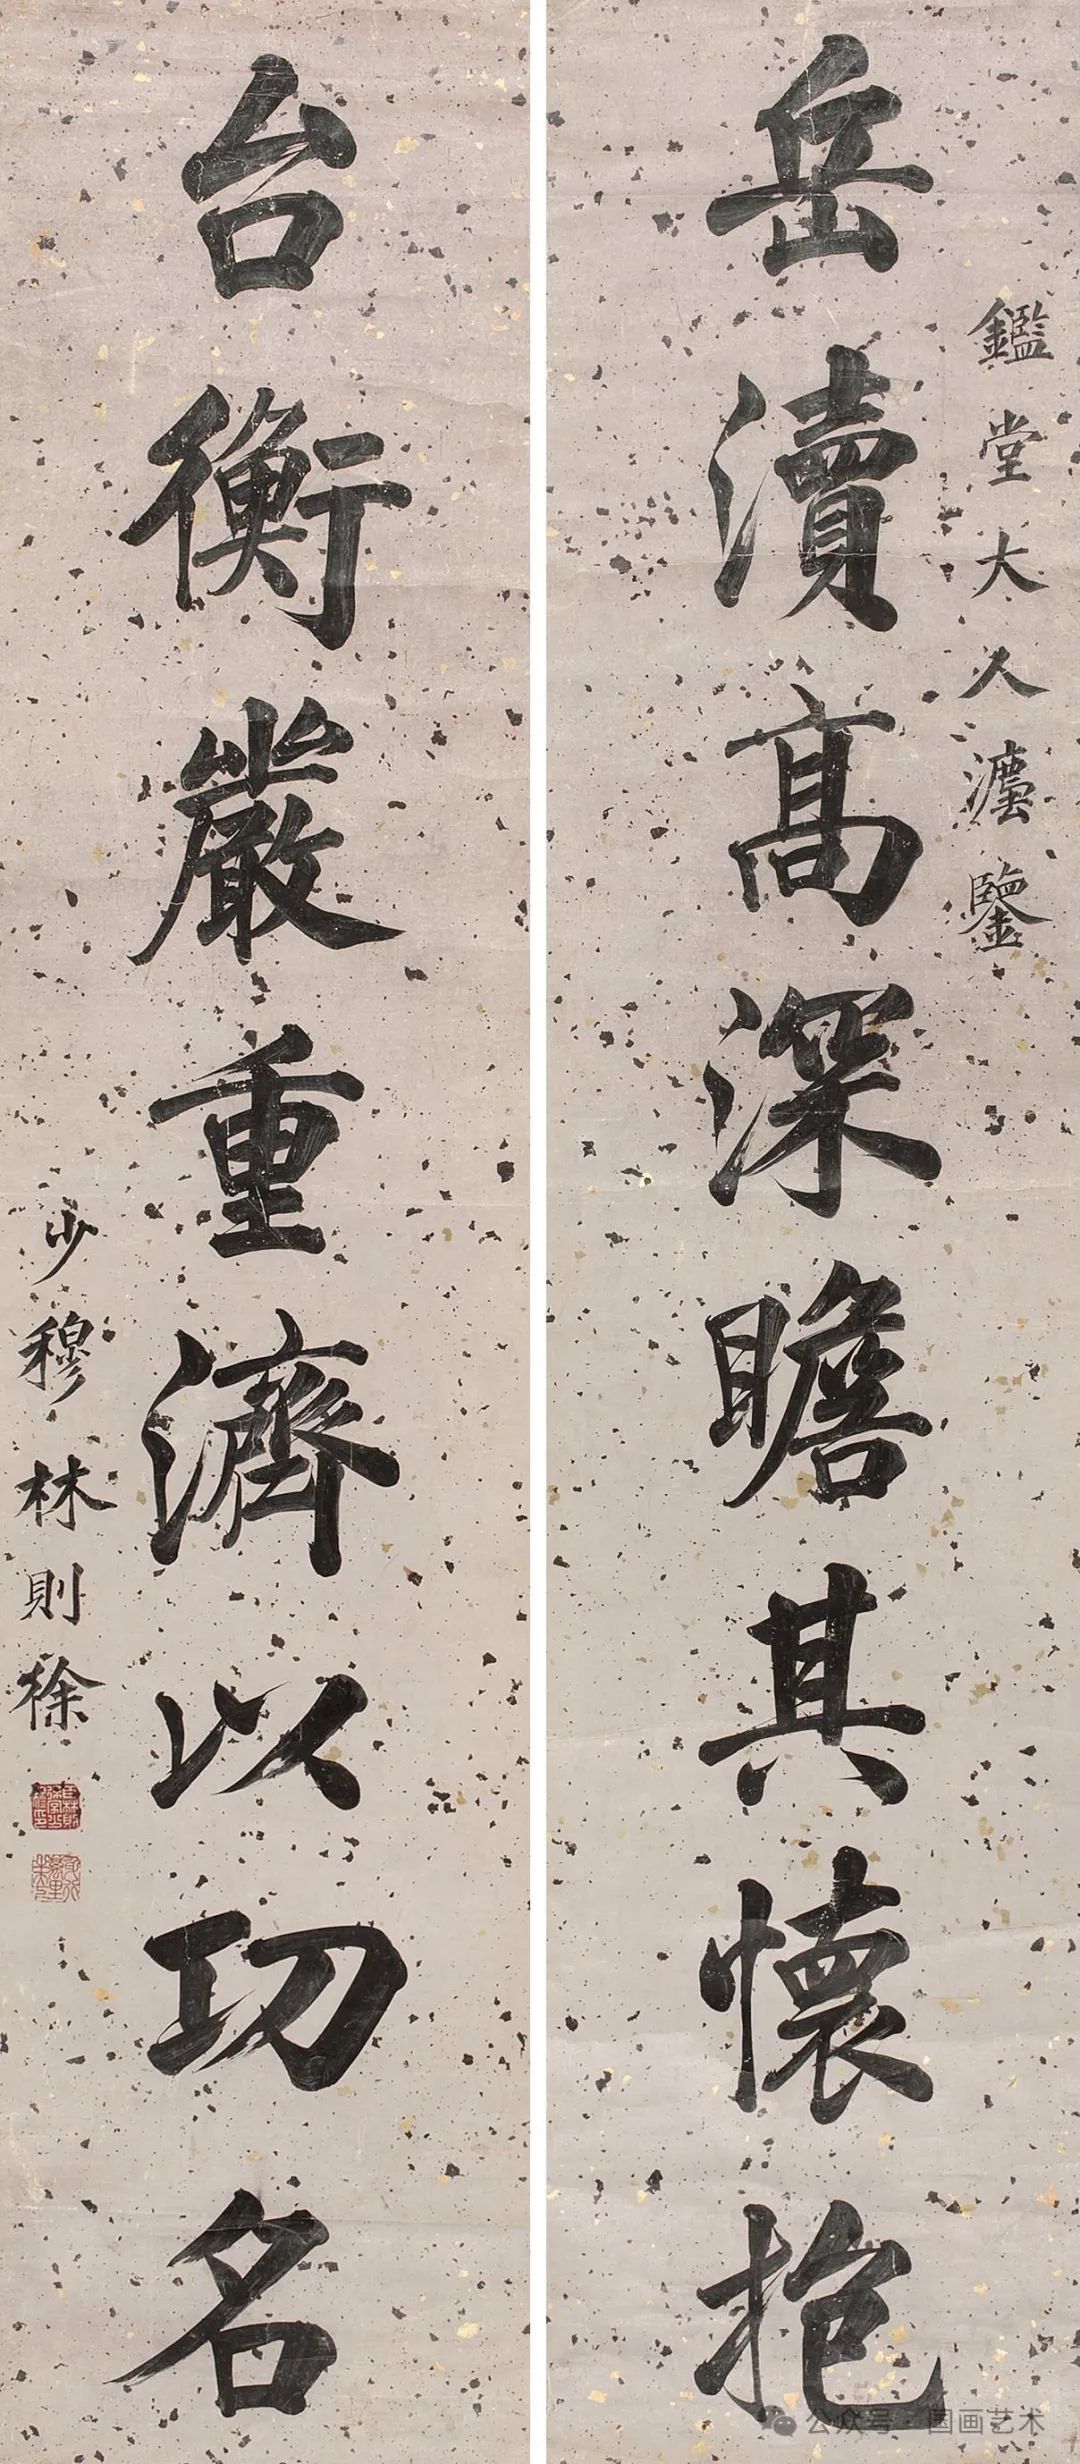 鑑堂大人灋鑒
岳瀆髙深瞻其懷抱
台衡嚴重濟以功名
少穆林則徐
公众号 · 国画艺术